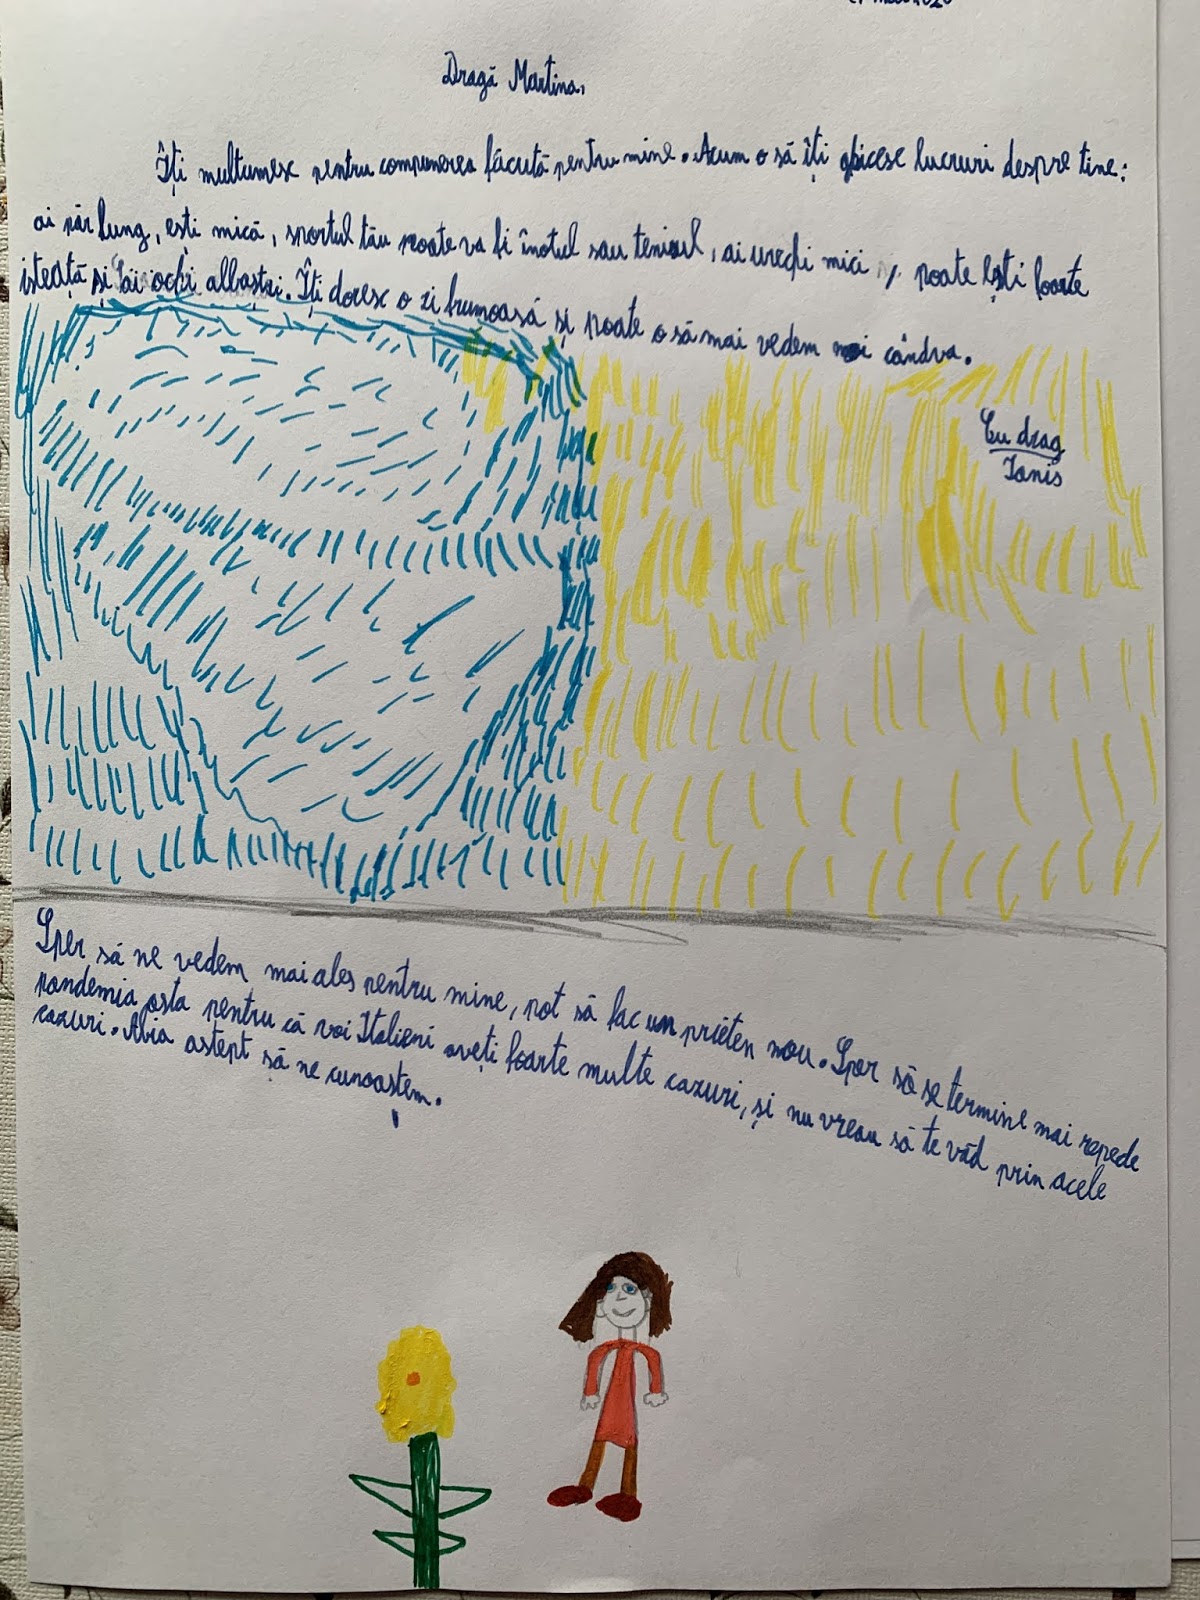 Dragă Martina,
Îți multumesc pentru compunerea făcută pentru mine. Acum o să îți ghicesc lucruri despre tine:
ai păr lung, esti mică, sportul tău poate va fi înotul sau tenisul, ai urechi mici și poate ești foarte
isteață și ai ochi albaștri. Îți doresc o zi frumoasă și poate o să mai vedem noi cândva.
Cu drag
Ianis
Sper să ne vedem mai ales pentru mine, pot să fac un prieten nou. Sper să se termine mai repede
pandemia asta pentru că voi Italieni aveți foarte multe cazuri, și nu vreau să te văd prin acele
cazuri. Abia astept să ne cunoastem.